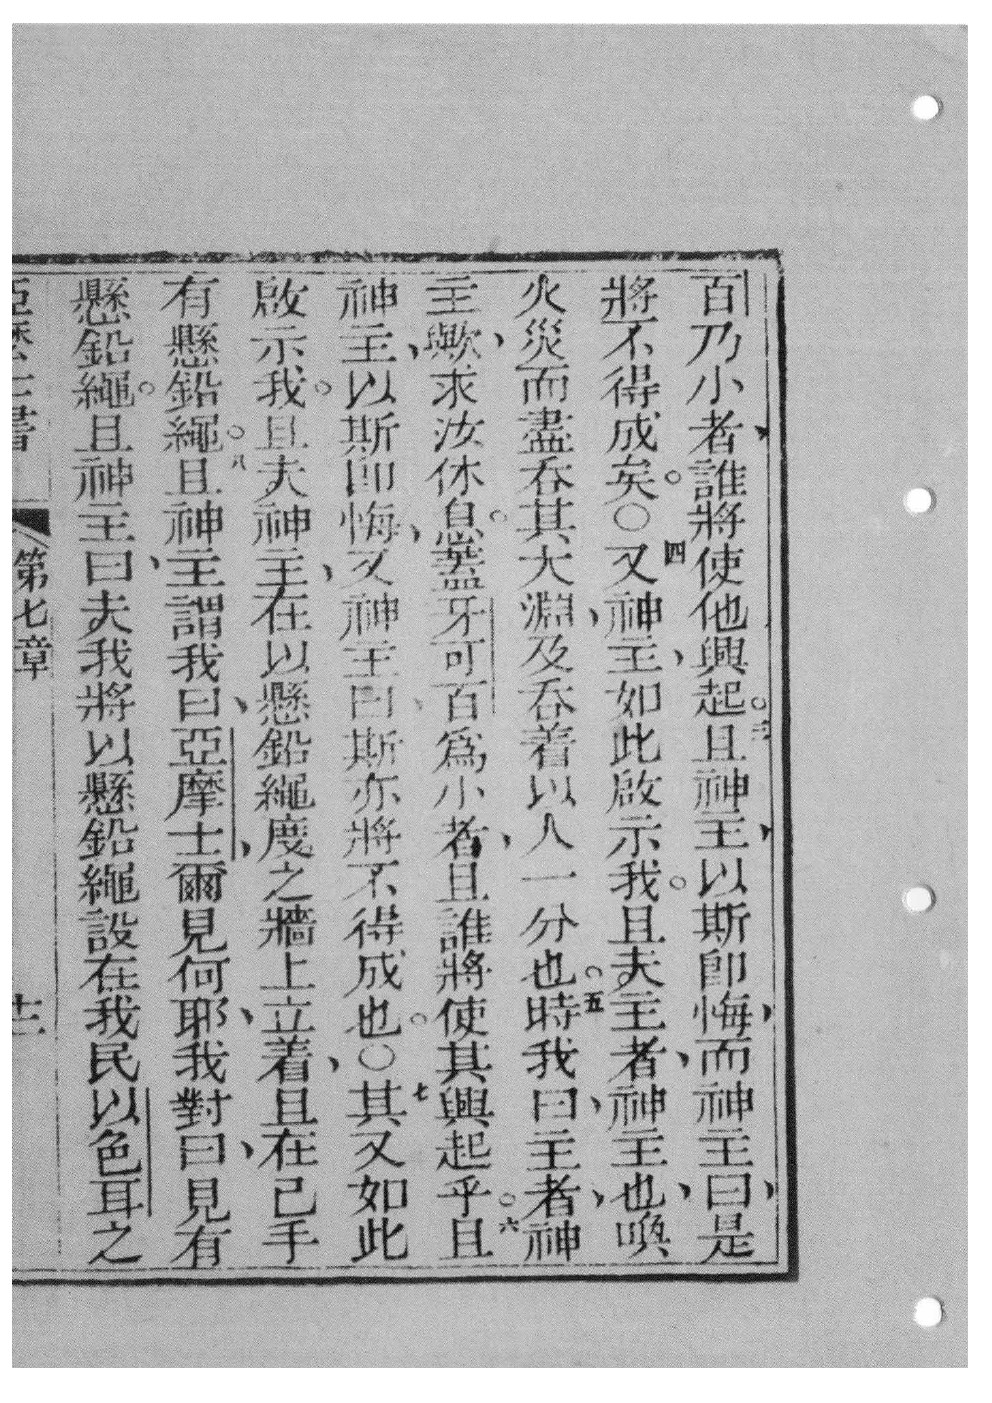 百乃小者、誰將使他興起。三且神主、以斯即悔、而神主曰、是
將不得成矣。○四又神主、如此啟示我。且夫主者、神主也、喚
火災而盡吞其大淵、及吞着以人一分也。五時我曰、主者、神
主、歟求汝休息。蓋牙可百爲小者、且誰將使其興起乎。六且
神主、以斯即悔、又神主曰、斯亦將不得成也。○七其又如此
啟示我。且夫神主、在以懸鉛繩度之牆上立着、且在己手
有懸鉛繩。八且神主謂我曰、亞摩士、爾見何耶、我對曰、見有
懸鉛繩。且神主曰、夫我將以懸鉛繩設在我民以色耳之
亞摩士書 第七章 十二